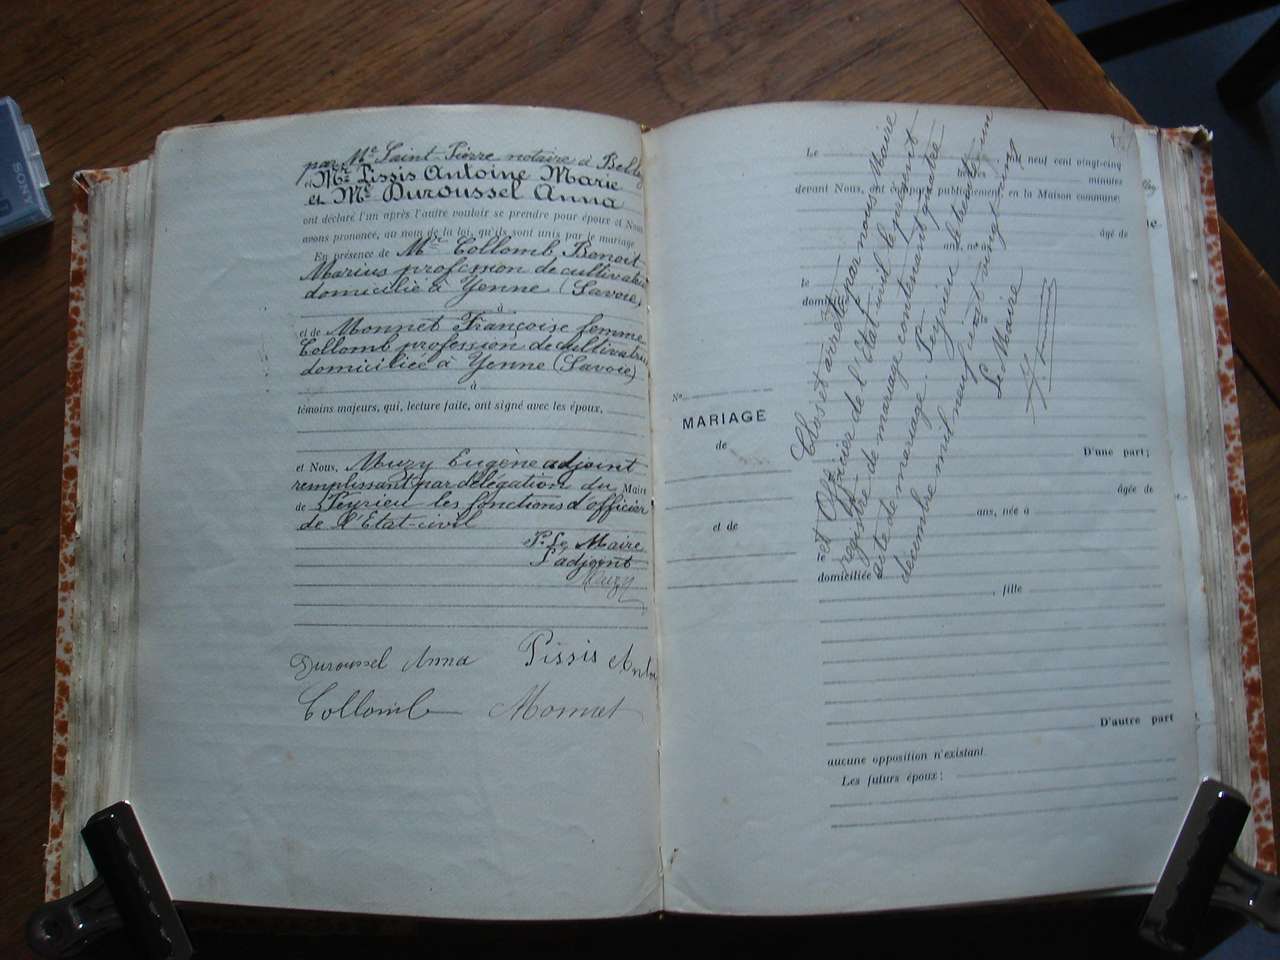 par Me Saint-Pierre notaire à Belley
Mr Pissis Antoine Marie
et Me Duroussel Anna
ont déclaré l'un après l'autre vouloir se prendre pour époux et Nous
avons prononcé, au nom de la loi, qu'ils sont unis par le mariage
En présence de Mr Collomb, Benoit
Marius profession de cultivateur
domicilié à Yenne (Savoie)
à
et de Monnet Françoise femme
Collomb profession de cultivatrice
domiciliée à Yenne (Savoie)
à
témoins majeurs, qui, lecture faite, ont signé avec les époux,
et Nous, Muzy Eugène adjoint
remplissant par délégation du Maire
de Peyrieu les fonctions d'officier
de l'Etat-civil
P. Le Maire
L'adjoint
Muzy
Duroussel Anna Pissis Anto
Collomb Monnet
SONY
No
MARIAGE
de
et de
Le neuf cent vingt-cinq
heures minutes
devant Nous, ont comparu publiquement en la Maison commune
âgé de
ans, né à
le
domicilié
D'une part;
âgée de
ans, née à
le
domiciliée à
et
, fille
D'autre part
aucune opposition n'existant.
Les futurs époux:
Clos et arrêté par nous Maire
Officier de l'Etat civil le présent
registre de mariage contenant quatre
acte de mariage. Peyrieu le trente-un
décembre mil neuf cent vingt-cinq
Le Maire